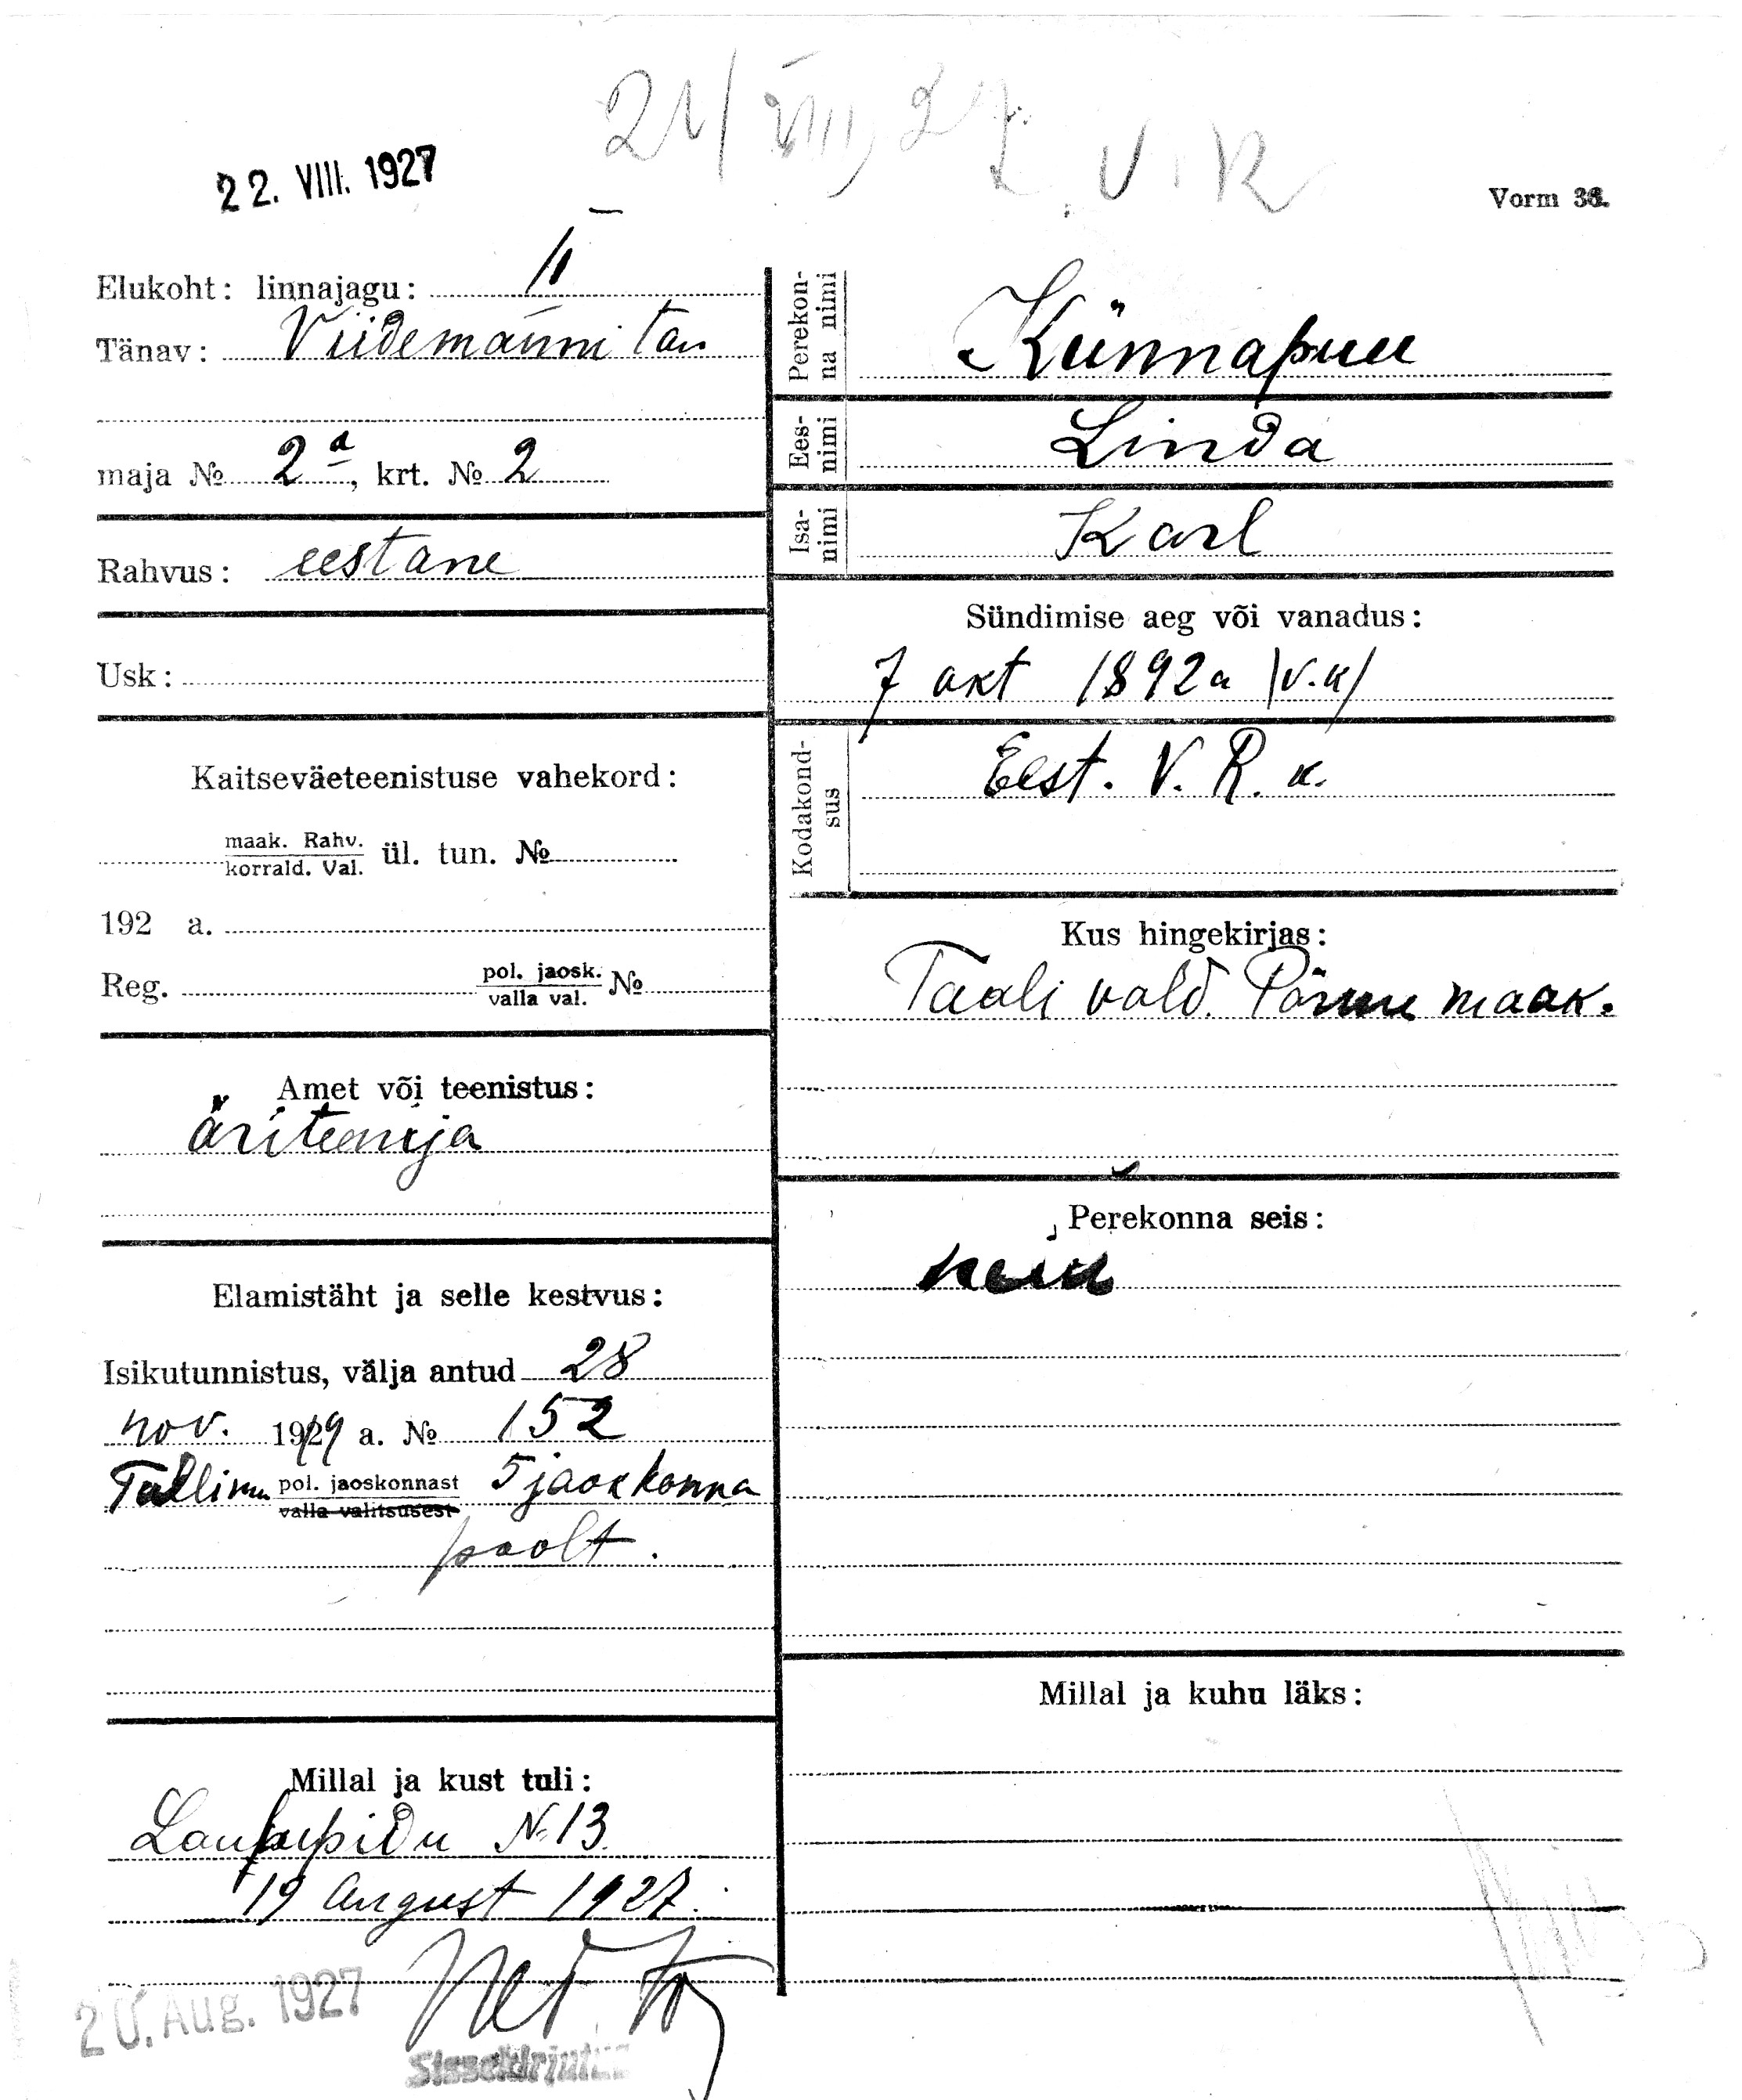 21/VIII, 27. V. R
22. VIII. 1927
Vorm 36.
Elukoht: linnajagu: II
Tänav: Viidemanni tän
maja № 2ª, krt. № 2
Rahvus: eestane
Usk:
Kaitseväeteenistuse vahekord:
maak. Rahv.
korrald. Val. ül. tun. №
192 a.
Reg. pol. jaosk. №
valla val.
Amet või teenistus:
äriteenija
Elamistäht ja selle kestvus:
Isikutunnistus, välja antud 28
nov. 1919 a. № 152
Tallinn pol. jaoskonnast 5 jaoskonna
valla valitsusest
poolt.
Millal ja kust tuli:
Laulupidu N. 13.
19 August 1927.
20. Aug. 1927
Sissekirjutud
Perekon-
na nimi
Künnapuu
Ees-
nimi
Linda
Isa-
nimi
Karl
Sündimise aeg või vanadus:
7 okt 1892 a /v.k/
Kodakond-
sus
Eest. V. R. k.
Kus hingekirjas:
Taali vald. Pärnu maak.
Perekonna seis:
neiu
Millal ja kuhu läks: